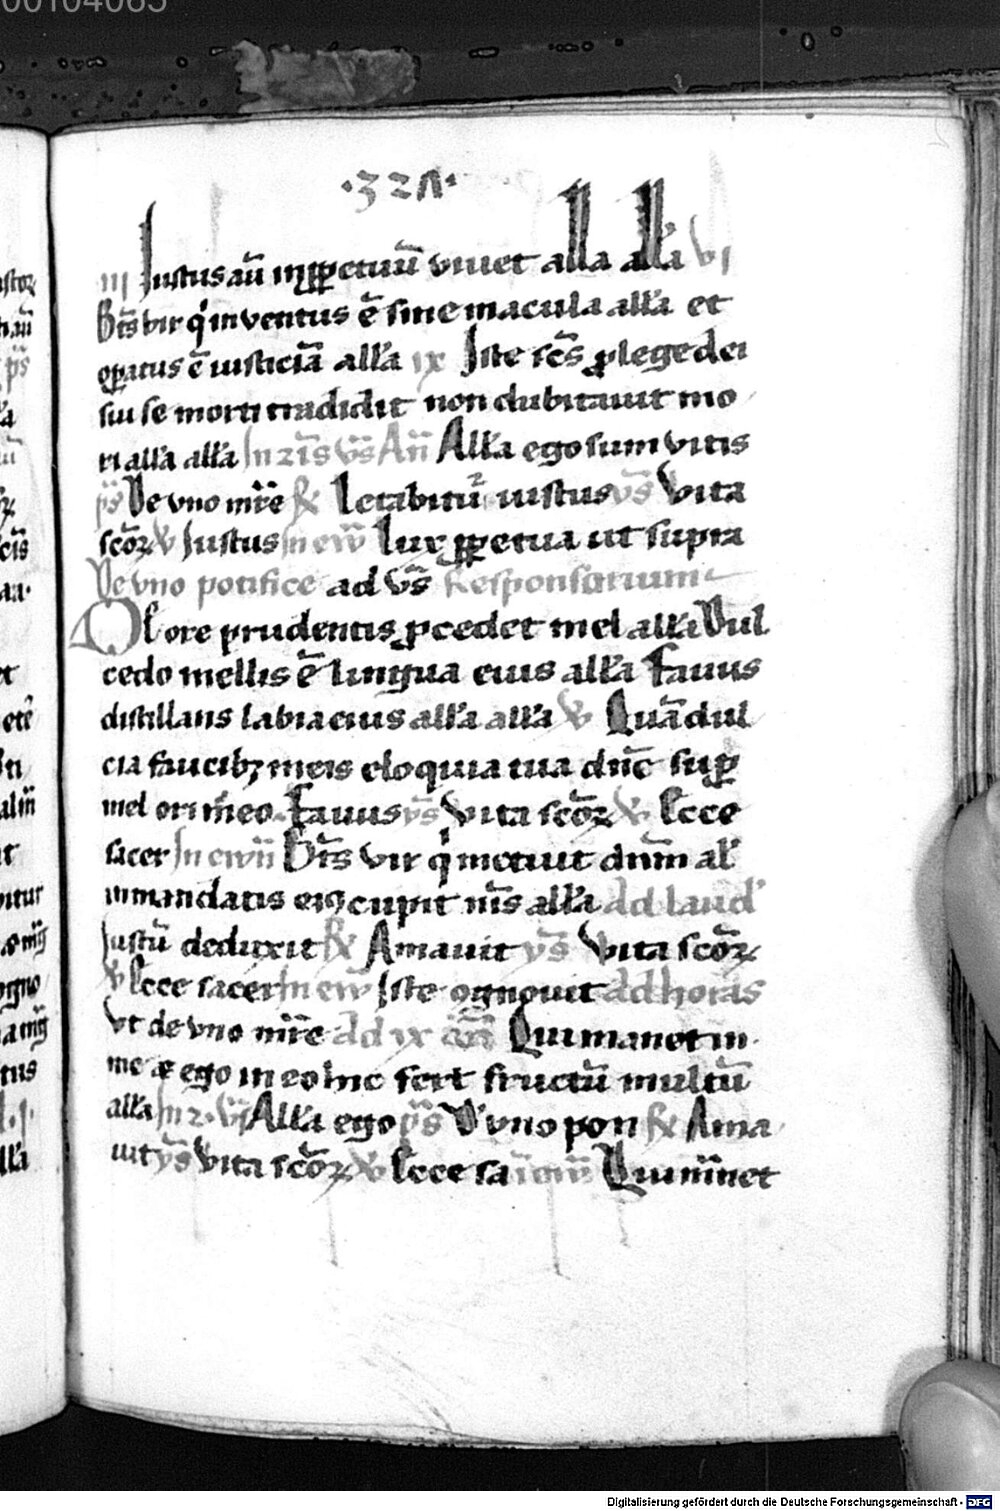 00104065
·32Λ·
iii Iustus aū inꝑpetuū viuet alla alla vi
Bt̄s vir q inventus ē sine macula alla et
oꝑatus ē iusticiā alla ix Iste sc̄s ꝓ lege dei
sui se morti tradidit non dubitauit mo
ri alla alla In ..is vs̄ Añ Alla ego sum vitis
ps̄ De vno mr̄e ℟ Letabitur iustus ys̄ Vita
scōꝝ ℣ Iustus In ew̄ Lux ꝑpetua ut supra
De vno pōtifice ad vs̄ Responsorium
Ex ore prudentis ꝓcedet mel alla Dul
cedo mellis ē lingua eius alla Fauus
distillans labia eius alla alla ℣ Quā dul
cia faucibꝫ meis eloquia tua dn̄e suꝑ
mel ori meo. Fauus ys̄ Vita scōꝝ ℣ Ecce
sacer In ew̄ Bt̄s vir q metuit dn̄m al
in mandatis eiꝯ cupit nis alla ad laud
Iustū deduxit ℟ Amauit ys̄ Vita scōꝝ
℣ Ecce sacer In ew̄ Iste ognouit ad horas
Vt de vno mr̄e ad ix añ Qui manet in
me ⁊ ego in eo hic fert fructū multū
alla In 2. vs̄ Alla ego ps̄ D vno pon ℟ Ama
uit ys̄ Vita scōꝝ ℣ Ecce sa Qui m̄net
Digitalisierung gefördert durch die Deutsche Forschungsgemeinschaft - DFG